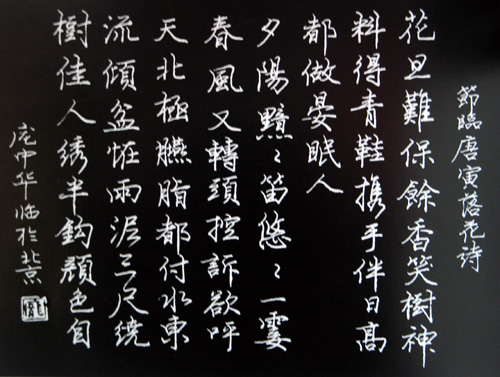 節臨唐寅落花詩
花旦難保餘香笑樹神
料得青鞋携手伴日高
都做晏眠人
夕陽黯〻笛悠〻一霎
春風又轉頭控訴欲呼
天北極臙脂都付水東
流傾盆怪雨泥三尺绕
樹佳人绣半鈎顔色自
庞中华临於北京